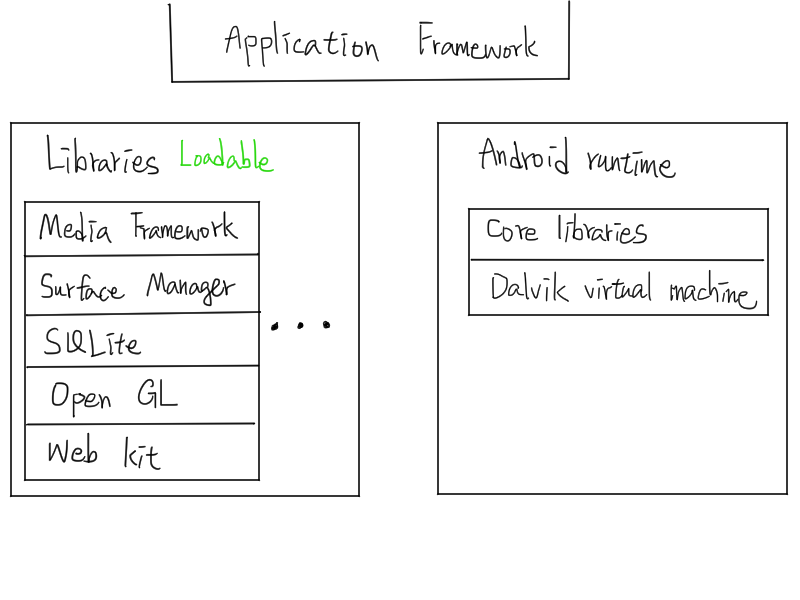 Application Framework
Libraries Loadable
Media Framework
Surface Manager
SQLite
Open GL
Web kit
...
Android runtime
Core libraries
Dalvik virtual machine